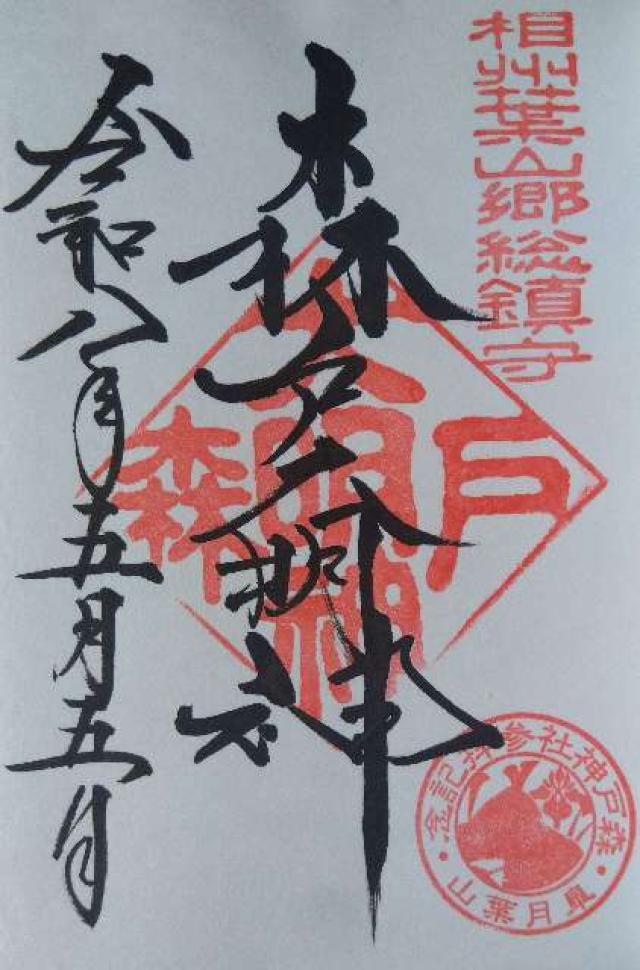 相州葉山郷総鎮守
森戸大明神
森戸大明神
令和八年五月五日
森戸神社参拝記念
皐月葉山